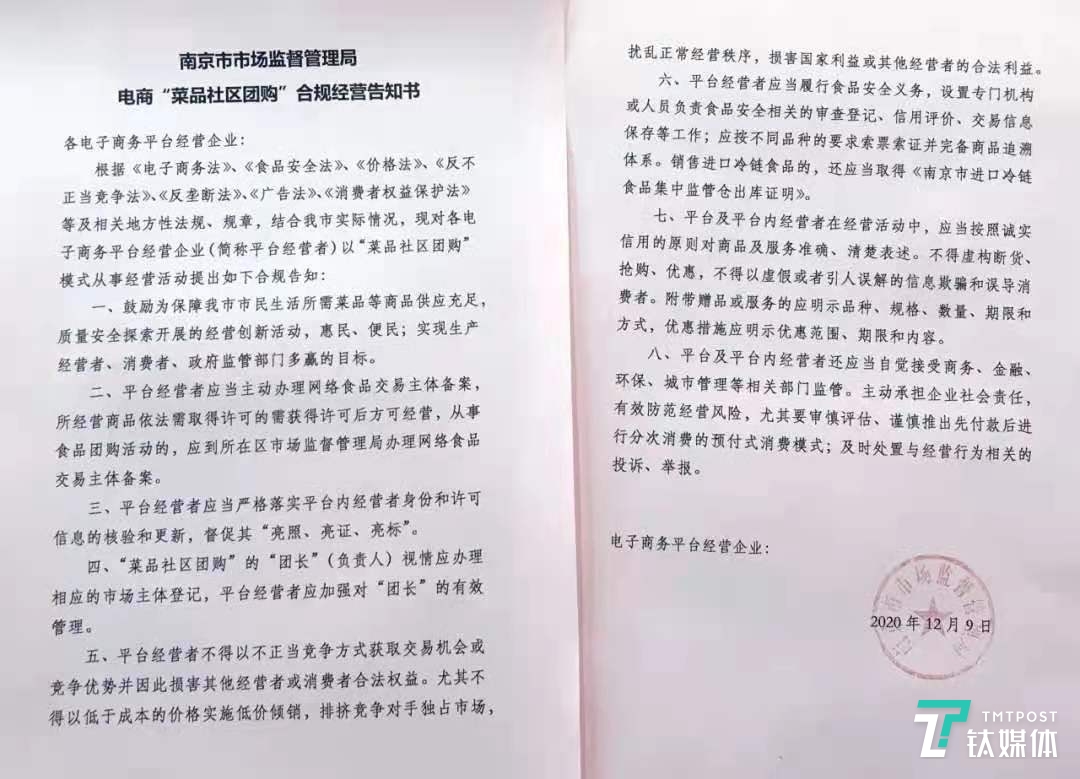 南京市市场监督管理局
电商“菜品社区团购”合规经营告知书
各电子商务平台经营企业:
根据《电子商务法》、《食品安全法》、《价格法》、《反不
正当竞争法》、《反垄断法》、《广告法》、《消费者权益保护法》
等及相关地方性法规、规章，结合我市实际情况，现对各电
子商务平台经营企业(简称平台经营者)以“菜品社区团购”
模式从事经营活动提出如下合规告知:
一、鼓励为保障我市市民生活所需菜品等商品供应充足，
质量安全探索开展的经营创新活动，惠民、便民；实现生产
经营者、消费者、政府监管部门多赢的目标。
二、平台经营者应当主动办理网络食品交易主体备案，
所经营商品依法需取得许可的需获得许可后方可经营，从事
食品团购活动的，应到所在区市场监督管理局办理网络食品
交易主体备案。
三、平台经营者应当严格落实平台内经营者身份和许可
信息的核验和更新，督促其“亮照、亮证、亮标”。
四、“菜品社区团购”的“团长”(负责人)视情应办理
相应的市场主体登记，平台经营者应加强对“团长”的有效
管理。
五、平台经营者不得以不正当竞争方式获取交易机会或
竞争优势并因此损害其他经营者或消费者合法权益。尤其不
得以低于成本的价格实施低价倾销，排挤竞争对手独占市场，
扰乱正常经营秩序，损害国家利益或其他经营者的合法利益。
六、平台经营者应当履行食品安全义务，设置专门机构
或人员负责食品安全相关的审查登记、信用评价、交易信息
保存等工作；应按不同品种的要求索票索证并完备商品追溯
体系。销售进口冷链食品的，还应当取得《南京市进口冷链
食品集中监管仓出库证明》。
七、平台及平台内经营者在经营活动中，应当按照诚实
信用的原则对商品及服务准确、清楚表述。不得虚构断货、
抢购、优惠，不得以虚假或者引人误解的信息欺骗和误导消
费者。附带赠品或服务的应明示品种、规格、数量、期限和
方式，优惠措施应明示优惠范围、期限和内容。
八、平台及平台内经营者还应当自觉接受商务、金融、
环保、城市管理等相关部门监管。主动承担企业社会责任，
有效防范经营风险，尤其要审慎评估、谨慎推出先付款后进
行分次消费的预付式消费模式；及时处置与经营行为相关的
投诉、举报。
电子商务平台经营企业:
市市场监督管理局
2020 年 12 月 9 日
TMTPOST
钛媒体